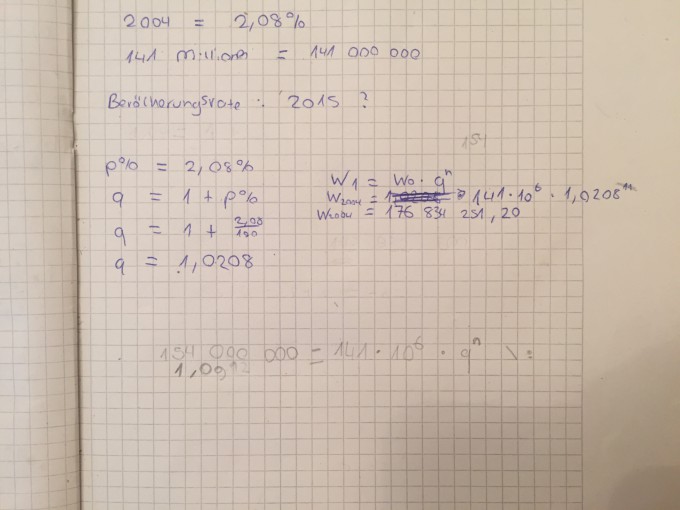 2004 = 2,08%
141 Millionen = 141 000 000
Bevölkerungsrate : 2015 ?
151
p% = 2,08%
q = 1 + p%
q = 1 + 2,08/100
q = 1,0208
W1 = W0 · qⁿ
W2004 = 141·10⁶ · 1,0208¹¹
W2004 = 176 834 251,20
154 000 000 = 141·10⁶ · qⁿ \:
1,09